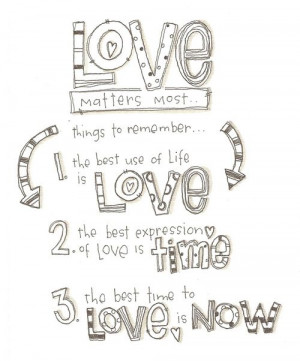 LOVE
matters most..
things to remember...
1. the best use of life
is LOVE
2. the best expression
of LOVE is time
3. the best time to
LOVE is NOW